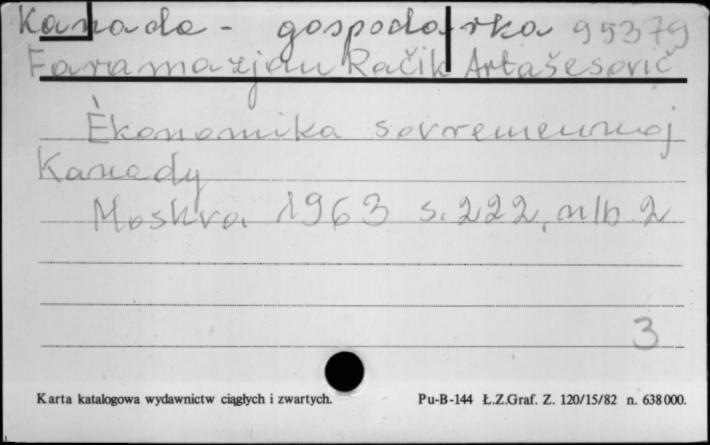 Kanada - gospodarka 95379
Faramazjan Račik Artašesovič
Èkonomika sovremennoj
Kanady
Moskva 1963 s. 222, nlb. 2
3
Karta katalogowa wydawnictw ciągłych i zwartych. Pu-B-144 Ł.Z.Graf. Z. 120/15/82 n. 638000.